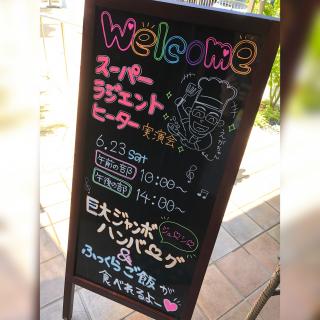 Welcome
スーパー
ラジエント
ヒーター
実演会
6.23 sat
午前の部 10:00~
午後の部 14:00~
巨大ジャンボ
ハンバーグ
&
ふっくらご飯が
食べれるよ~